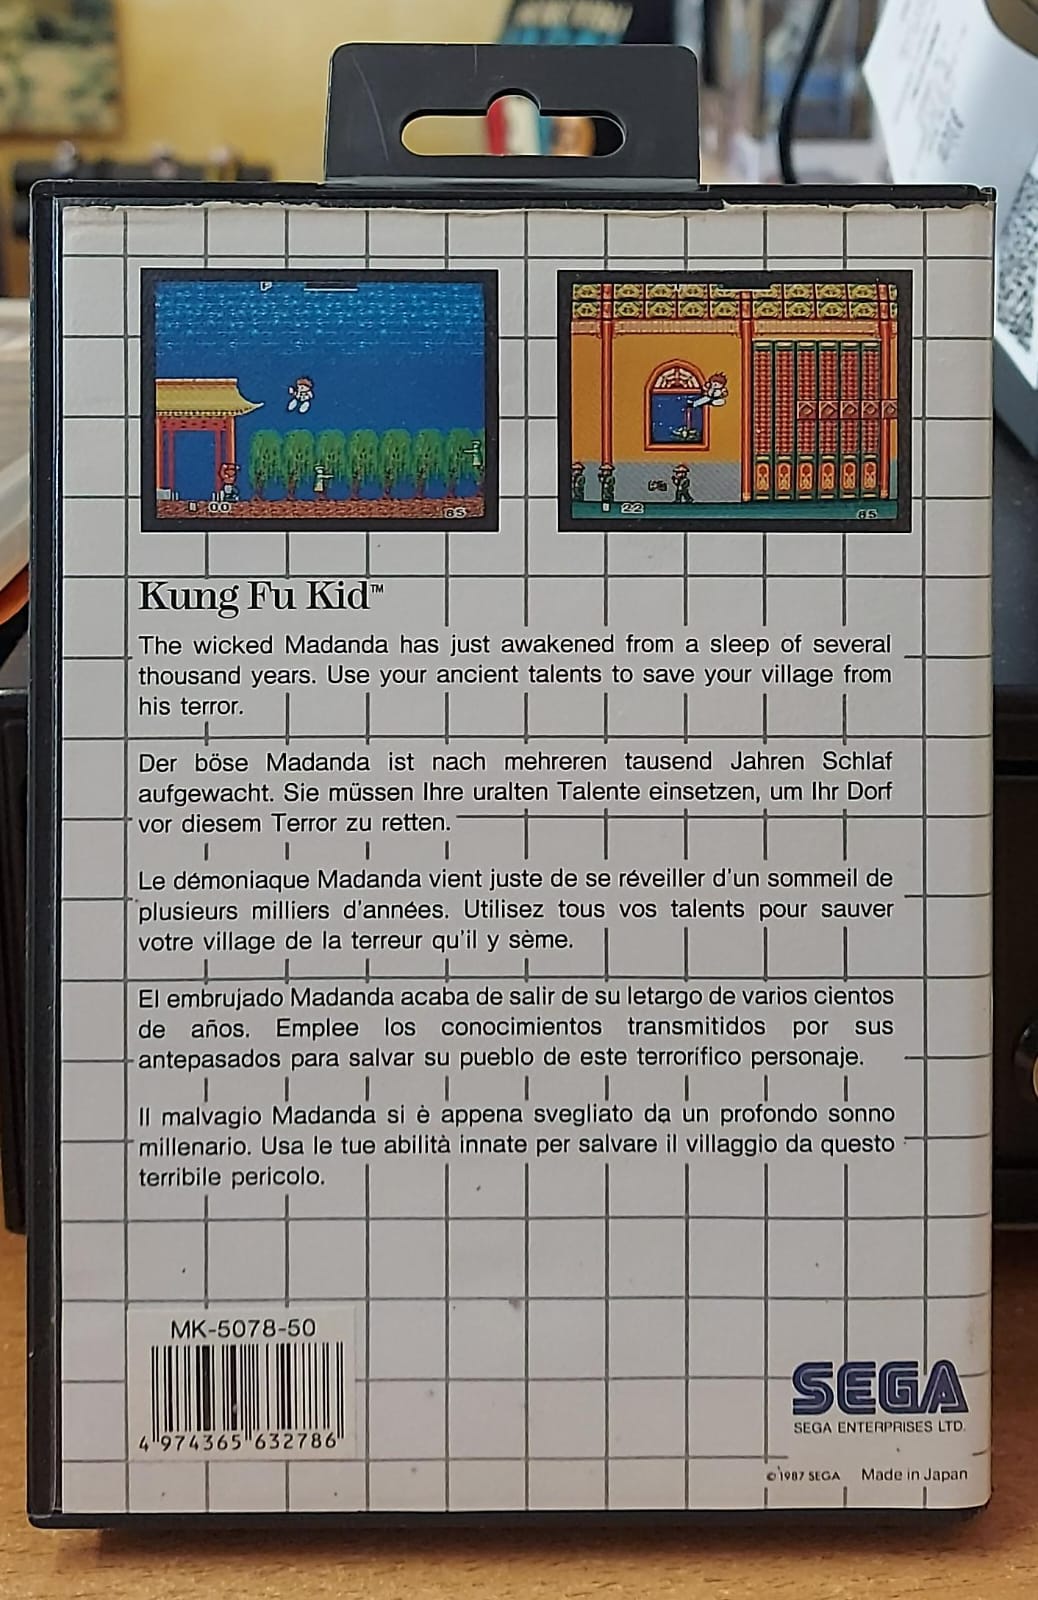 00
85
22
85
Kung Fu Kid™
The wicked Madanda has just awakened from a sleep of several
thousand years. Use your ancient talents to save your village from
his terror.
Der böse Madanda ist nach mehreren tausend Jahren Schlaf
aufgewacht. Sie müssen Ihre uralten Talente einsetzen, um Ihr Dorf
vor diesem Terror zu retten.
Le démoniaque Madanda vient juste de se réveiller d'un sommeil de
plusieurs milliers d'années. Utilisez tous vos talents pour sauver
votre village de la terreur qu'il y sème.
El embrujado Madanda acaba de salir de su letargo de varios cientos
de años. Emplee los conocimientos transmitidos por sus
antepasados para salvar su pueblo de este terrorífico personaje.
Il malvagio Madanda si è appena svegliato da un profondo sonno
millenario. Usa le tue abilità innate per salvare il villaggio da questo
terribile pericolo.
MK-5078-50
4 974365 632786
SEGA
SEGA ENTERPRISES LTD.
©1987 SEGA Made in Japan